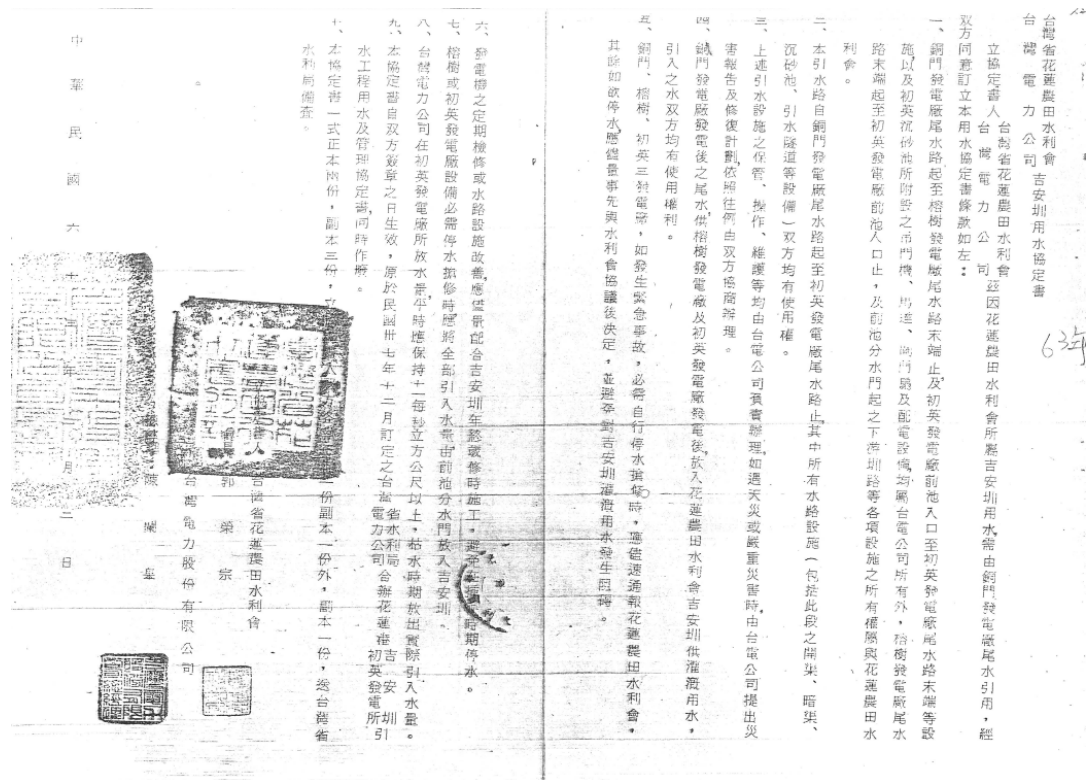 台灣省花蓮農田水利會
台灣電力公司
吉安圳用水協定書
63年
立協定書人
台灣省花蓮農田水利會
台灣電力公司
茲因花蓮農田水利會所屬吉安圳用水需由銅門發電廠尾水引用，經
双方同意訂立本用水協定書條款如左：
一、銅門發電廠尾水路起至榕樹發電廠尾水路末端止及初英發電廠前池入口至初英發電廠尾水路末端等設
施以及初英沉砂池所附設之吊門機、馬道、閘門扇及配電設備均屬台電公司所有外，榕樹發電廠尾水
路末端起至初英發電廠前池入口止，及前池分水門起之下游圳路等各項設施之所有權屬與花蓮農田水
利會。
二、本引水路自銅門發電廠尾水路起至初英發電廠尾水路止其中所有水路設施（包括此段之開渠、暗渠、
沉砂池、引水隧道等設備）双方均有使用權。
三、上述引水設施之保管、操作、維護等均由台電公司負責辦理，如遇天災或嚴重災害時，由台電公司提出災
害報告及修復計劃，依照往例由双方協商辦理。
四、銅門發電廠發電後之尾水，供榕樹發電廠及初英發電廠發電後，放入花蓮農田水利會吉安圳供灌溉用水，
引入之水双方均有使用權利。
五、銅門、榕樹、初英三發電廠，如發生緊急事故，必需自行停水搶修時，應儘速通報花蓮農田水利會，
其餘如欲停水，應儘量事先與水利會協議後決定，並避免對吉安圳灌溉用水發生阻碍。
六、發電機之定期檢修或水路設施改善，應儘量配合吉安圳年終歲修時施工，避免在 時期停水。
七、榕樹或初英發電廠設備必需停水搶修時應將全部引入水量由前池分水門放入吉安圳。
八、台灣電力公司在初英發電廠所放水量平時應保持十一每秒立方公尺以上，枯水時期放出實際引入水量。
九、本協定書自双方簽章之日生效，原於民國卅七年十二月訂定之台灣
省水利局
電力公司
合辦花蓮港
吉安圳
初英發電所
引
水工程用水及管理協定書，同時作廢。
十、本協定書一式正本兩份，副本三份， 份副本一份外，副本一份，送台灣省
水利局備查。
立協定書人：台灣省花蓮農田水利會
郭榮宗
台灣電力股份有限公司
陳蘭皋
中華民國六十 年 月二日